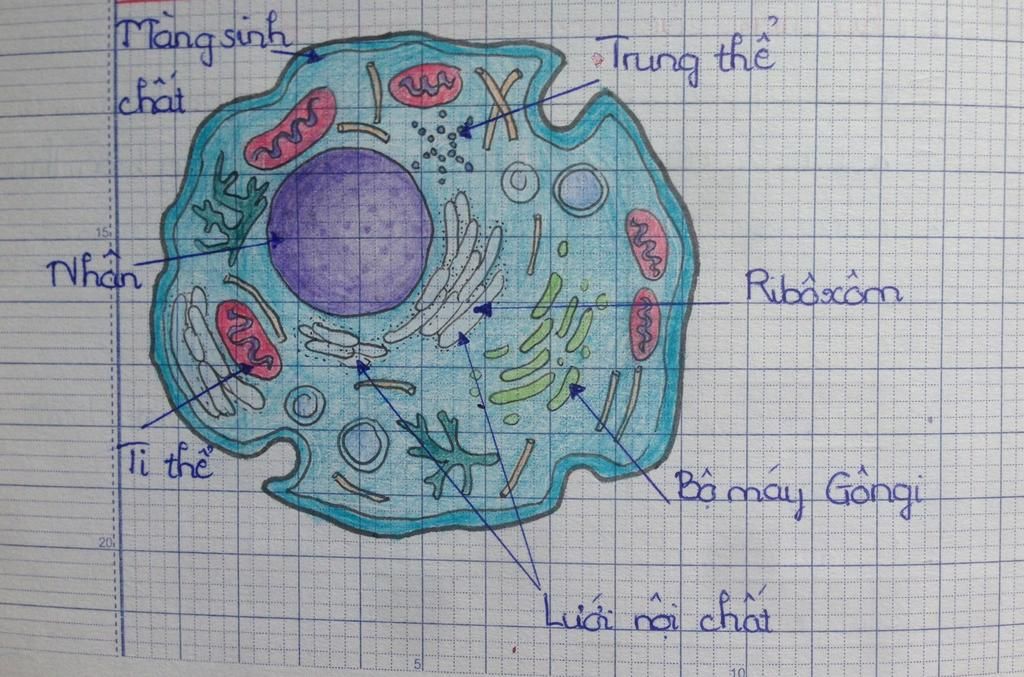 Màng sinh
chất
Trung thể
15
Nhân
Ribôxôm
Ti thể
Bộ máy Gôngi
20
Lưới nội chất
5
10